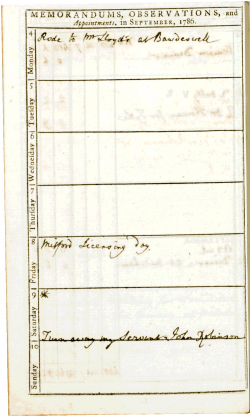 MEMORANDUMS, OBSERVATIONS, and
Appointments, in SEPTEMBER, 1786.
4 Monday Rode to Mr Lloyd's at Bawdeswell
5 Tuesday
6 Wednesday
7 Thursday
8 Friday Mitford Licensing day.
9 Saturday
Turn away my Servant John Robinson
10 Sunday